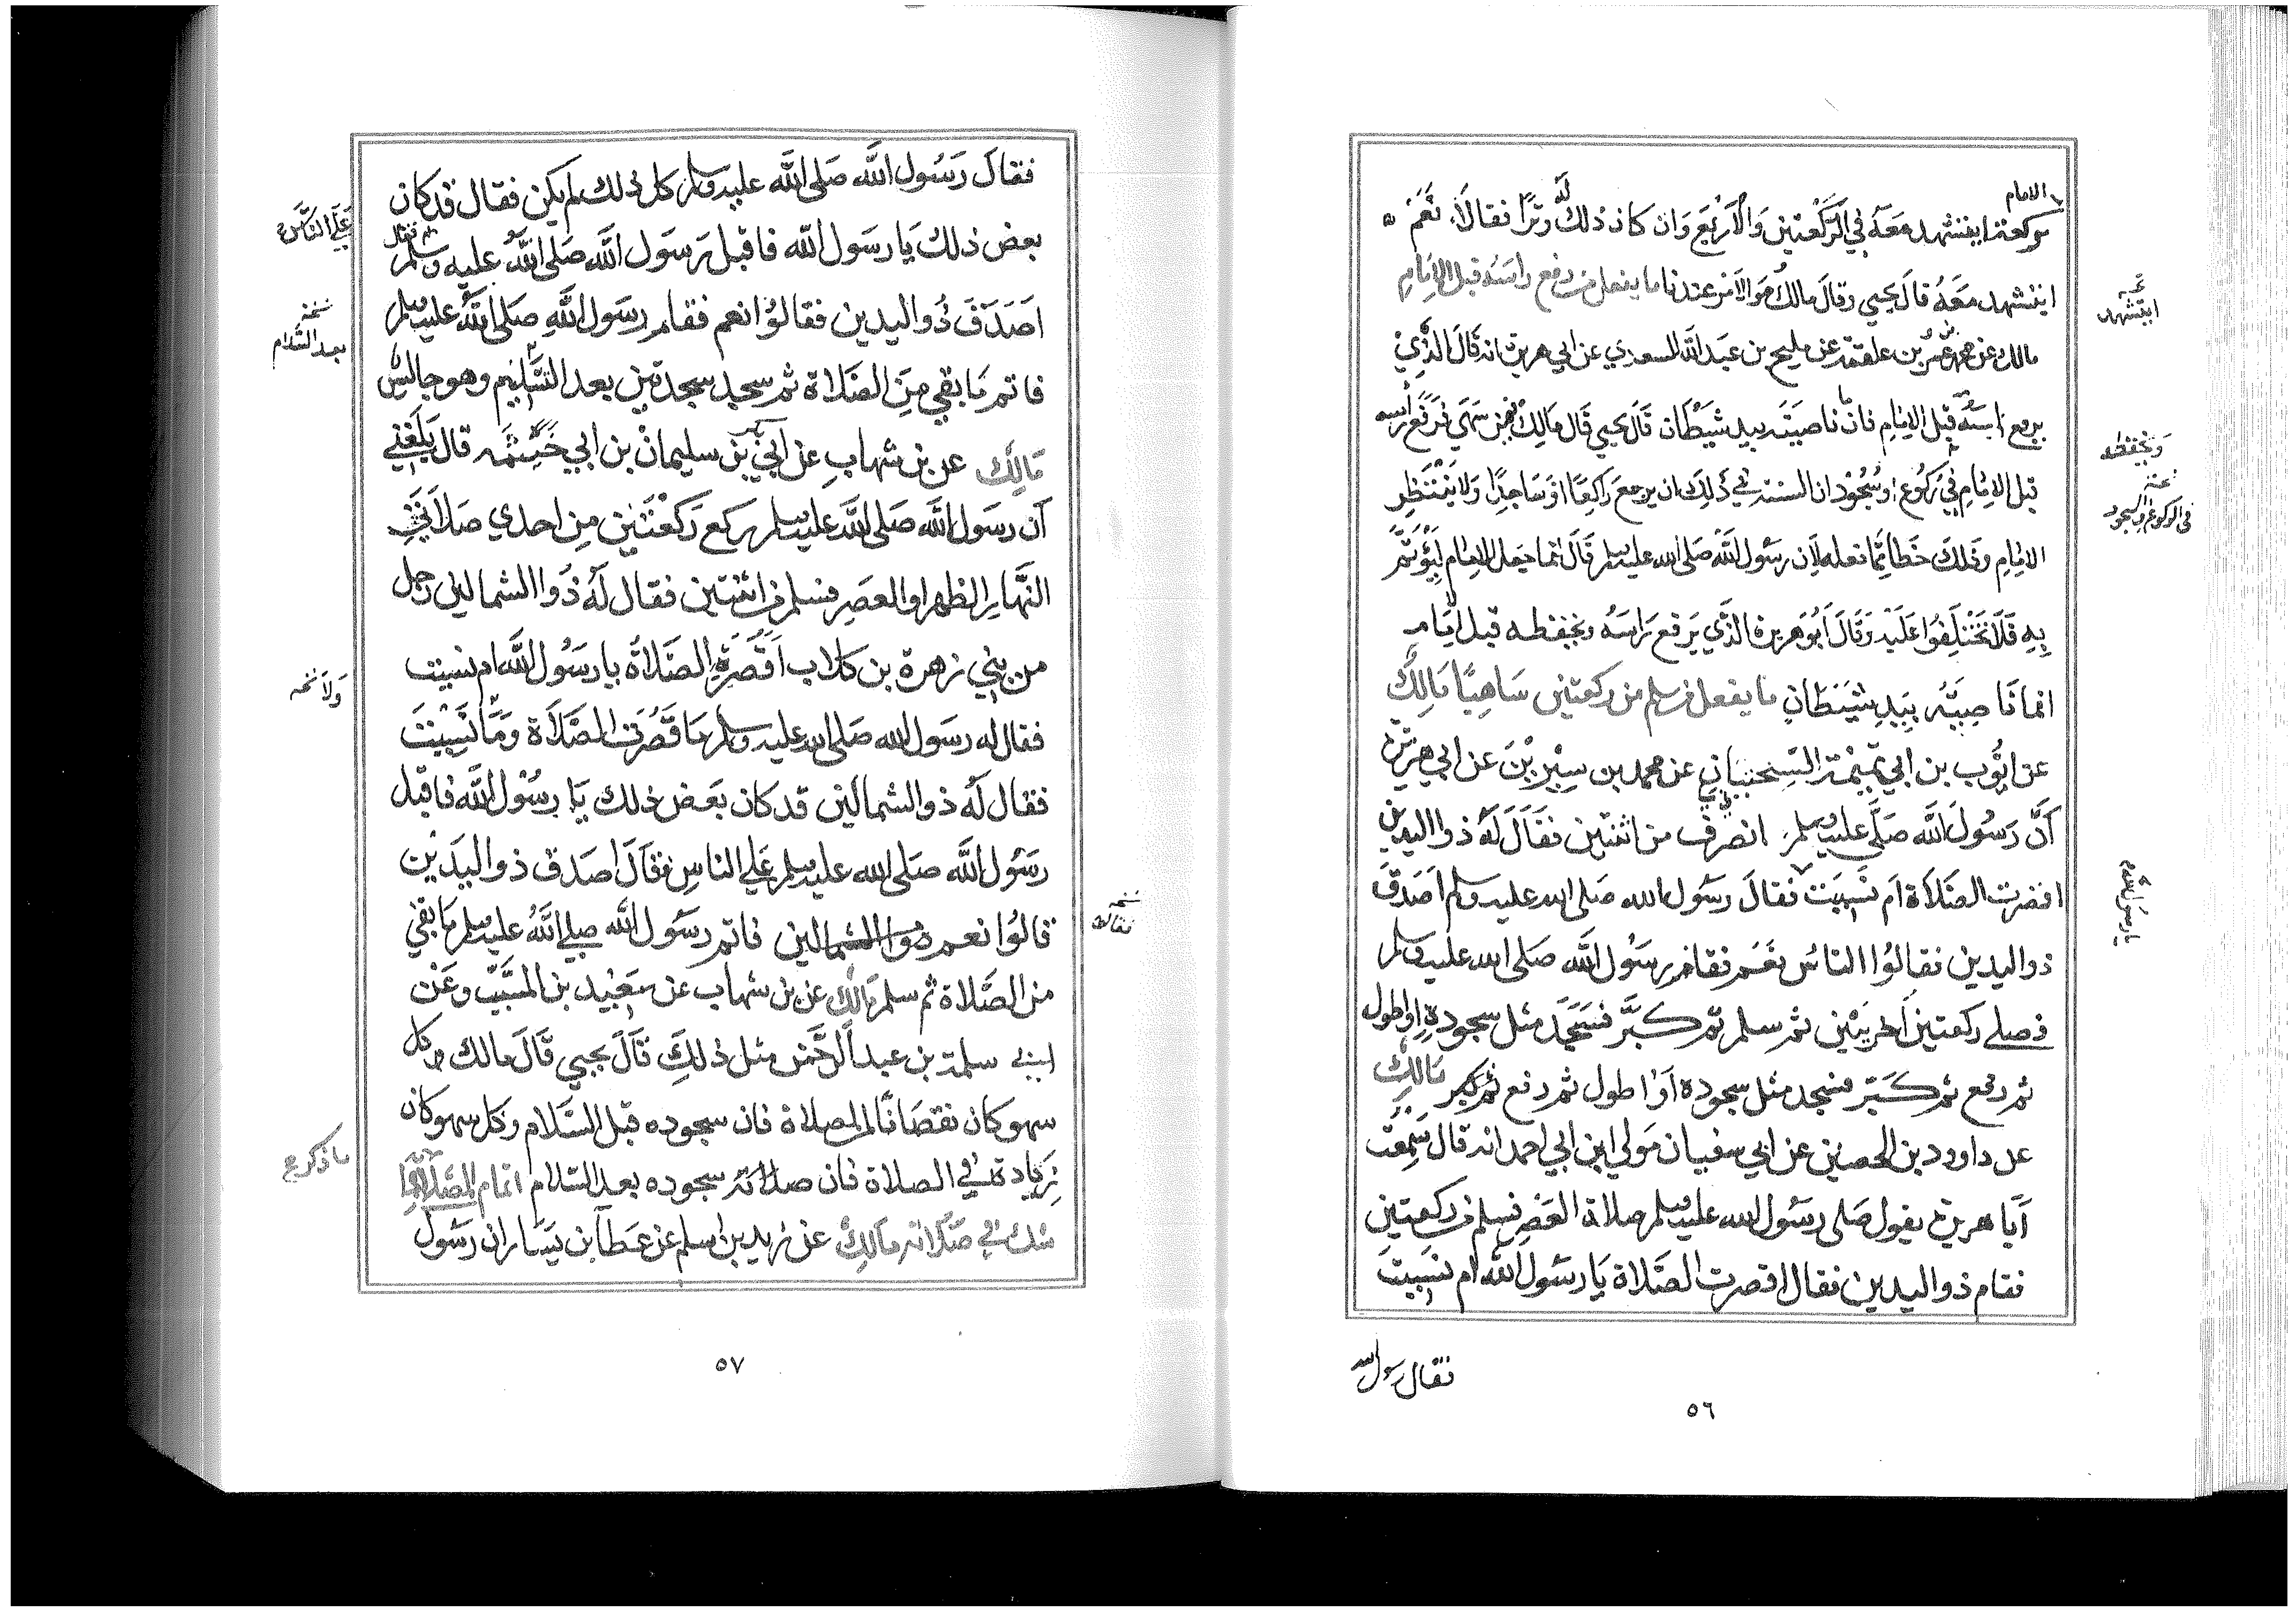 الامام
بركعة ايتشهد معه في الركعتين والاربع وان كان ذلك له وترا فقالا نعم
ايتشهد معه قال يحيي وقال مالك وهو الامر عندنا ما يفعل من رفع راسه قبل الامام
مالك عن محمد بن عمرو بن علقمة عن مليح بن عبد الله السعدي عن ابي هريرة انه قال الذي
يرفع راسه قبل الامام فان ناصيته بيد شيطان قال يحيي قال مالك فيمن سهي فرفع راسه
قبل الامام في ركوع او سجود ان السنة في ذلك ان يرجع راكعا او ساجدا ولا ينتظر
الامام وذلك خطا ممن فعله لان رسول الله صلى الله عليه وسلم قال انما جعل الامام ليؤتم
به فلا تختلفوا عليه وقال ابو هريرة الذي يرفع راسه ويخفضه قبل الامام
انما ناصيته بيد شيطان ما يفعل من سلم من ركعتين ساهيا مالك
عن ايوب بن ابي تميمة السختياني عن محمد بن سيرين عن ابي هريرة
أن رسول الله صلى عليه وسلم انصرف من اثنتين فقال له ذو اليدين
اقصرت الصلاة ام نسيت فقال رسول الله صلى الله عليه وسلم اصدق
ذو اليدين فقالوا الناس نعم فقام رسول الله صلى الله عليه وسلم
فصلى ركعتين اخريين ثم سلم ثم كبر فسجد مثل سجوده او اطول
ثم رفع ثم كبر فسجد مثل سجوده او اطول ثم رفع ثم كبر مالك
عن داوود بن الحصين عن ابي سفيان مولي ابن ابي احمد انه قال سمعت
أبا هريرة يقول صلى رسول الله عليه وسلم صلاة العصر فسلم في ركعتين
فقام ذو اليدين فقال اقصرت الصلاة يا رسول الله ام نسيت
فقال رسول الله
٥٦
ايتشهد
ويخفضه
في الركوع والسجود
يا رسول الله
فقال رسول الله صلى الله عليه وسلم كل ذلك لم يكن فقال قد كان
بعض ذلك يا رسول الله فاقبل رسول الله صلى الله عليه وسلم فقال
اصدق ذو اليدين فقالوا نعم فقام رسول الله صلى الله عليه وسلم
فاتم ما بقي من الصلاة ثم سجد سجدتين بعد التسليم وهو جالس
مالك عن بن شهاب عن ابي بكر بن سليمان بن ابي خيثمه قال بلغني
أن رسول الله صلى الله عليه وسلم ركع ركعتين من احدي صلاتي
النهار الظهر او العصر فسلم في اثنتين فقال له ذو الشمالين رجل
من بني زهرة بن كلاب اقصرت الصلاة يا رسول الله ام نسيت
فقال له رسول الله صلى الله عليه وسلم ما قصرت الصلاة وما نسيت
فقال له ذو الشمالين قد كان بعض ذلك يا رسول الله فاقبل
رسول الله صلى الله عليه وسلم علي الناس فقال اصدق ذو اليدين
قالوا نعم ذوا الشمالين فاتم رسول الله صلي الله عليه وسلم ما بقي
من الصلاة ثم سلم مالك عن بن شهاب عن سعيد بن المسيب وعن
ابي سلمة بن عبد الرحمن مثل ذلك قال يحيي قال مالك وكل
سهو كان نقصانا للصلاة فان سجوده قبل السلام وكل سهو كان
زيادة في الصلاة فان صلاته سجوده بعد السلام اتمام المصلي اذا
شك في صلاته مالك عن زيد بن اسلم عن عطا بن يسار ان رسول
٥٧
علي الناس
نسخة
بعد السلام
ولا
ما ذكر
نسخة
فقالت